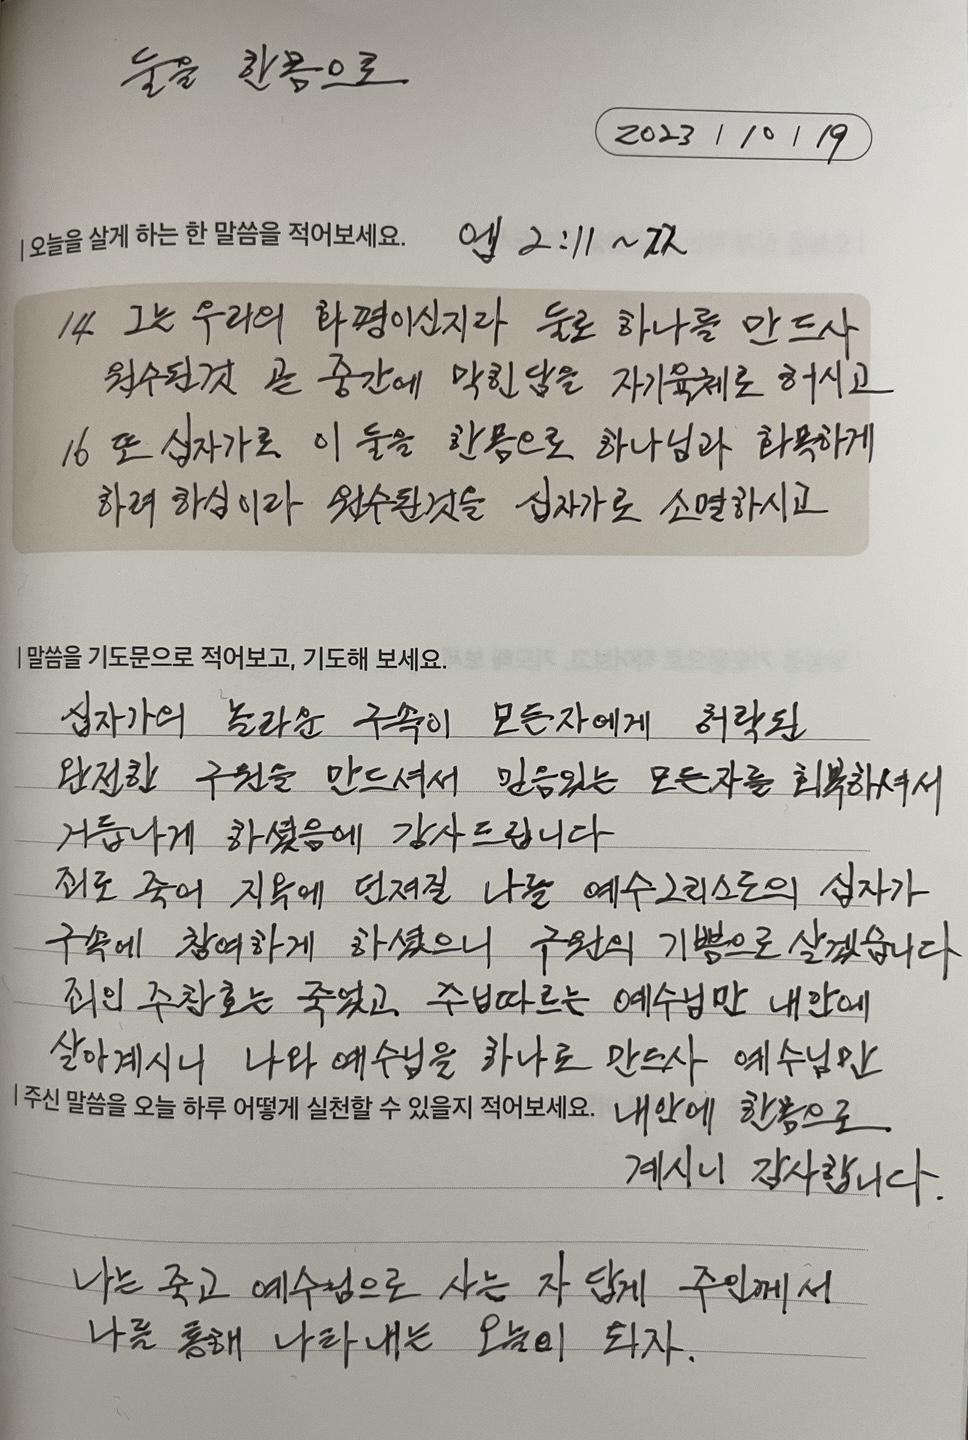 둘을 한몸으로
2023 / 10 / 19
오늘을 살게 하는 한 말씀을 적어보세요. 엡 2:11~22
14 그는 우리의 화평이신지라 둘로 하나를 만드사
원수된것 곧 중간에 막힌담을 자기육체로 허시고
16 또 십자가로 이 둘을 한몸으로 하나님과 화목하게
하려 하심이라 원수된것을 십자가로 소멸하시고
말씀을 기도문으로 적어보고, 기도해 보세요.
십자가의 놀라운 구속이 모든자에게 허락된
완전한 구원을 만드셔서 믿음있는 모든자를 회복하셔서
거듭나게 하셨음에 감사드립니다
죄로 죽어 지옥에 던져질 나를 예수그리스도의 십자가
구속에 참여하게 하셨으니 구원의 기쁨으로 살겠습니다
죄인 주찬호는 죽었고, 주님따르는 예수님만 내안에
살아계시니 나와 예수님을 하나로 만드사 예수님만
주신 말씀을 오늘 하루 어떻게 실천할 수 있을지 적어보세요. 내안에 한몸으로
계시니 감사합니다.
나는 죽고 예수님으로 사는 자 답게 주인께서
나를 통해 나타내는 오늘이 되자.